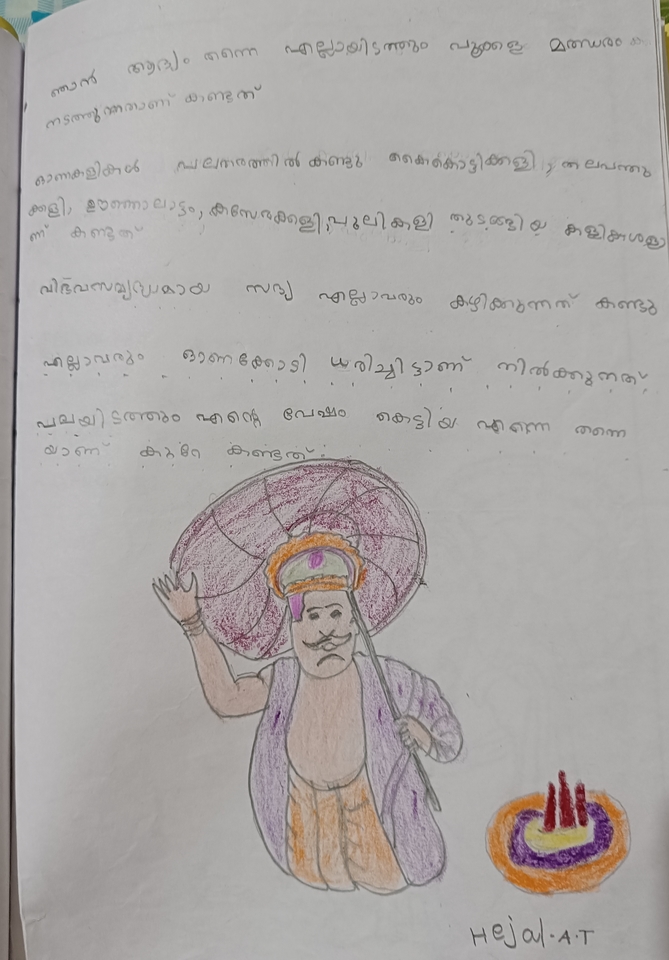 ഞാൻ ആദ്യം തന്നെ എല്ലായിടത്തും പൂക്കള മത്സരം
നടത്തുന്നതാണ് കണ്ടത്
ഓണകളികൾ പലതരത്തിൽ കണ്ടു കൈകൊട്ടിക്കളി, തലപന്തു
ക്കളി, ഊഞ്ഞാലാട്ടം, കസേരക്കളി, പുലികളി തുടങ്ങിയ കളികളാ
ണ് കണ്ടത്
വിഭവസമൃദ്ധമായ സദ്യ എല്ലാവരും കഴിക്കുന്നത് കണ്ടു
എല്ലാവരും ഓണക്കോടി ധരിച്ചിട്ടാണ് നിൽക്കുന്നത്
പലയിടത്തും എന്റെ വേഷം കെട്ടിയ എന്നെ തന്നെ
യാണ് കുറേ കണ്ടത്
Hejal.A.T